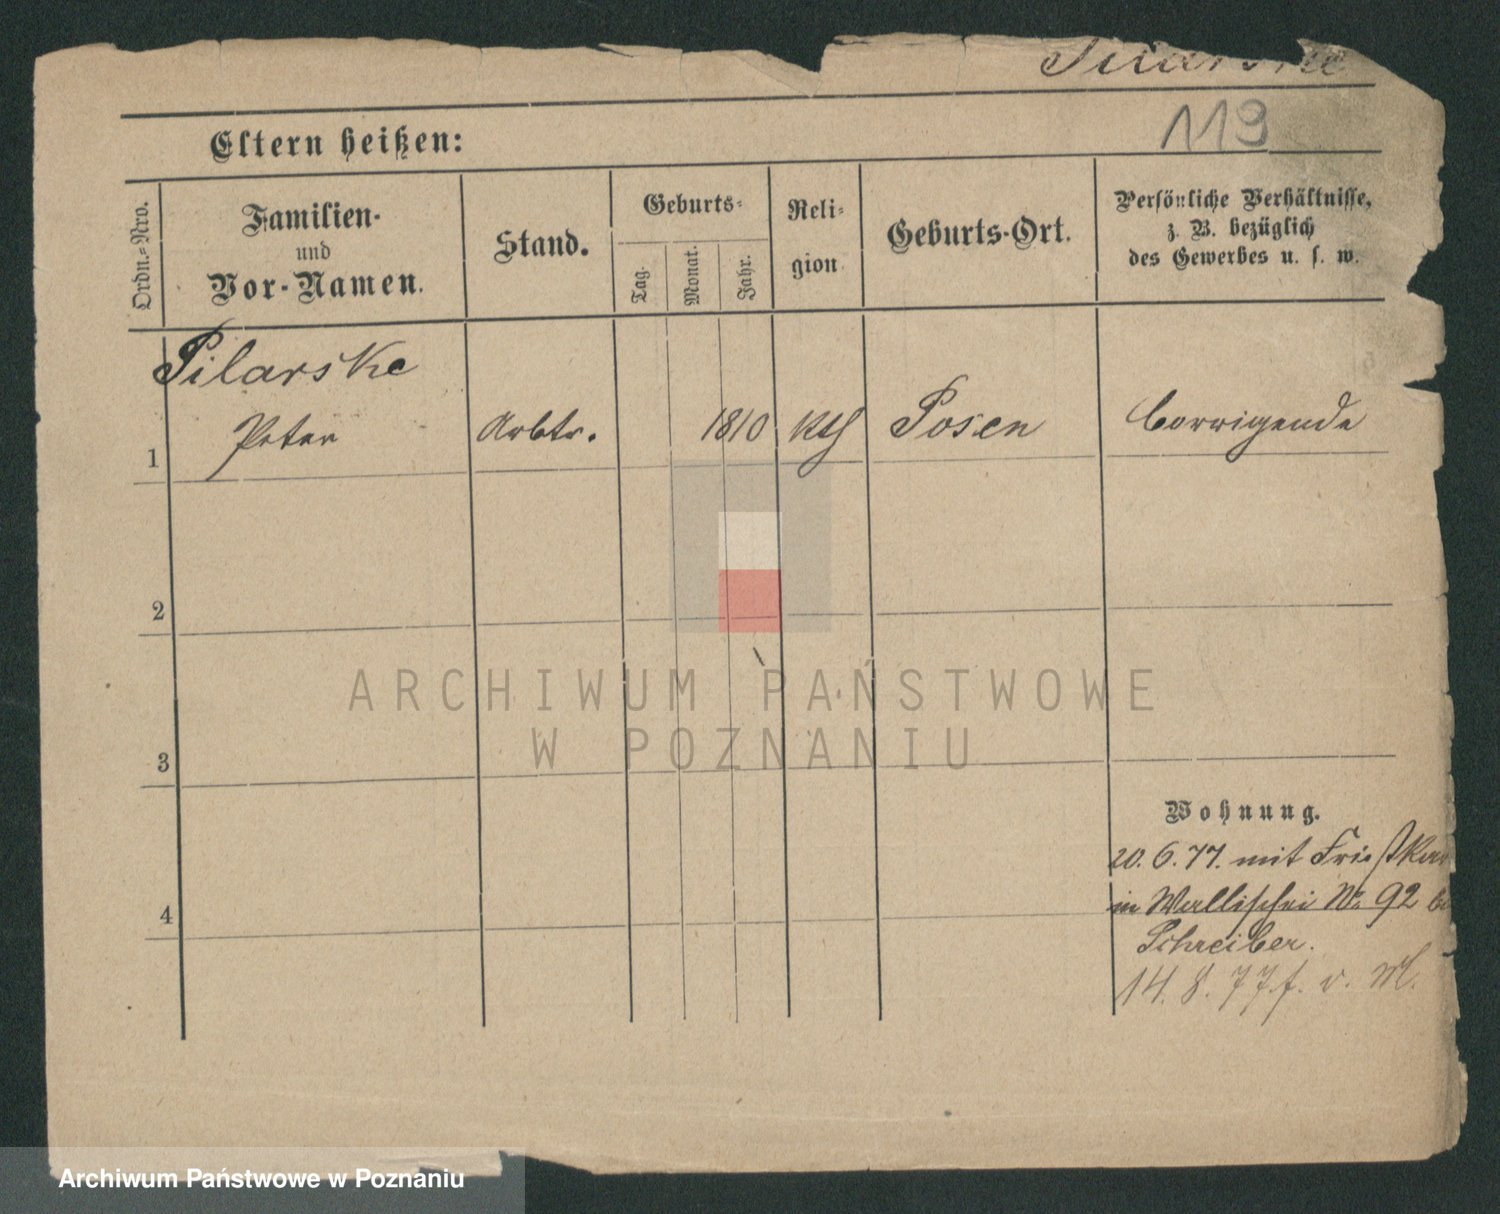 Pilarske
119
Eltern heißen:
Ordn.-Nro.
Familien-
und
Vor-Namen.
Stand.
Geburts-
Tag.
Monat.
Jahr.
Reli-
gion
Geburts-Ort.
Persönliche Verhältnisse,
z. B. bezüglich
des Gewerbes u. s. w.
Pilarske
1 Peter Arbtr. 1810 Kth Posen Corrigende
2
3
4
Wohnung.
20. 6. 77. mit
in Wallischei No 92
Schreiber.
14. 8. 77. f. v. M.
ARCHIWUM PAŃSTWOWE
W POZNANIU
Archiwum Państwowe w Poznaniu